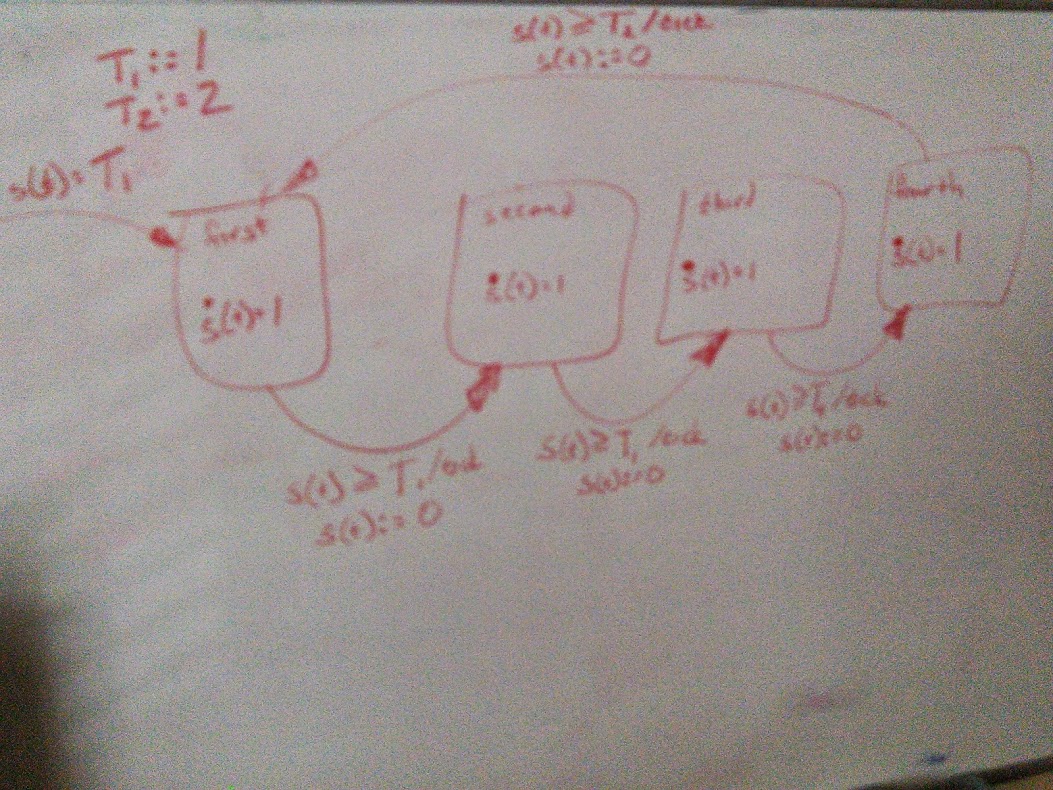 s(t) ≥ T₂ /tick
s(t):=0
T₁:=1
T₂:=2
s(t)=T₁
first
ṡ(t)=1
second
ṡ(t)=1
third
ṡ(t)=1
fourth
ṡ(t)=1
s(t) ≥ T₁ /tick
s(t):=0
s(t) ≥ T₁ /tick
s(t):=0
s(t) ≥ T₁ /tick
s(t):=0